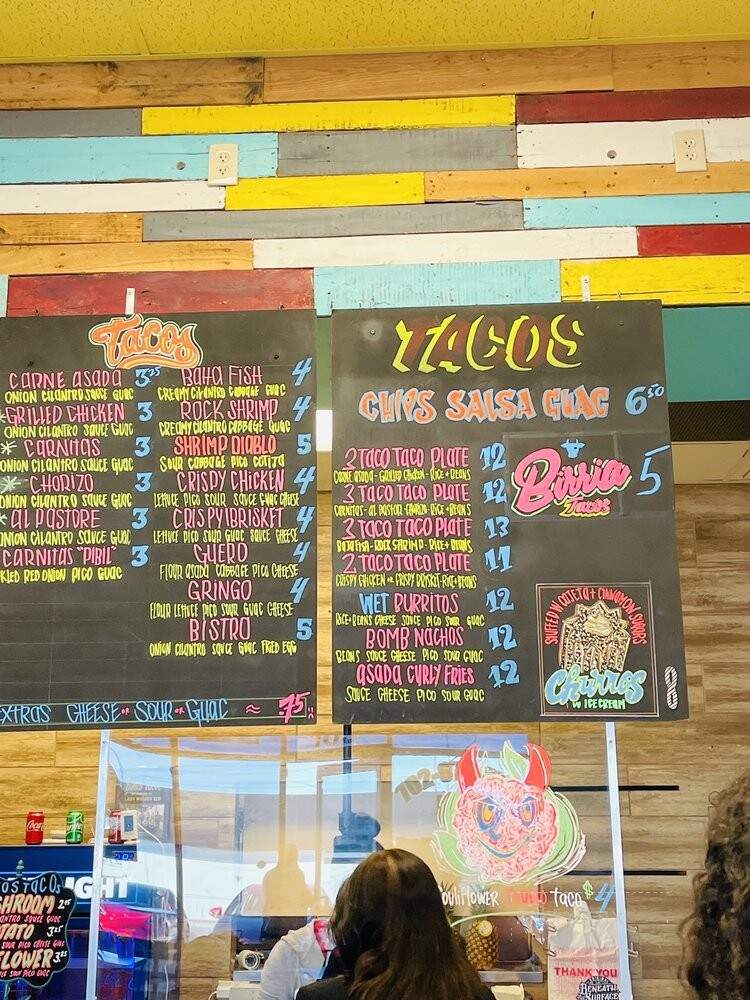 Tacos
CARNE ASADA 3.25
ONION CILANTRO SAUCE GUAC
*GRILLED CHICKEN 3
ONION CILANTRO SAUCE GUAC
*CARNITAS 3
ONION CILANTRO SAUCE GUAC
*CHORIZO 3
ONION CILANTRO SAUCE GUAC
*AL PASTORE 3
ONION CILANTRO SAUCE GUAC
CARNITAS "PIBIL" 3
KLED RED ONION PICO GUAC
BAHA FISH 4
CREAMY CILANTRO CABBAGE GUAC
ROCK SHRIMP 4
CREAMY CILANTRO CABBAGE GUAC
SHRIMP DIABLO 5
SOUR CABBAGE PICO COTIJA
CRISPY CHICKEN 4
LETTUCE PICO SOUR SAUCE GUAC CHEESE
CRISPY BRISKET 4
LETTUCE PICO SOUR GUAC SAUCE CHEESE
GUERO 4
FLOUR ASADA CABBAGE PICO CHEESE
GRINGO 4
FLOUR LETTUCE PICO SOUR GUAC CHEESE
BISTRO 5
ONION CILANTRO SAUCE GUAC FRIED EGG
EXTRAS CHEESE OR SOUR OR GUAC ≈ .75
TACOS
CHIPS SALSA GUAC 6.50
3 TACO TACO PLATE 12
CARNE ASADA - GRILLED CHICKEN - RICE + BEANS
3 TACO TACO PLATE 12
CARNITAS - AL PASTOR - CHORIZO - RICE + BEANS
3 TACO TACO PLATE 13
BAJA FISH - ROCK SHRIMP - RICE + BEANS
2 TACO TACO PLATE 11
CRISPY CHICKEN OR CRISPY BRISKET - RICE + BEANS
WET BURRITOS 12
RICE + BEANS CHEESE SAUCE PICO SOUR GUAC
BOMB NACHOS 12
BEANS SAUCE CHEESE PICO SOUR GUAC
ASADA CURLY FRIES 12
SAUCE CHEESE PICO SOUR GUAC
Birria 5
Tacos
STUFFED W CAJETA + CINNAMON SUGARS
Churros 8
W ICE CREAM
Coca
GHT
OS TACOS
SHROOM 2.95
ANTRO SAUCE GUAC
TATO 3.25
SOUR PICO CHEESE GUAC
FLOWER 3.25
SAUCE SOUR PICO GUAC
OULIFLOWER taco $4
THANK YOU
BENEATH
SURFACE